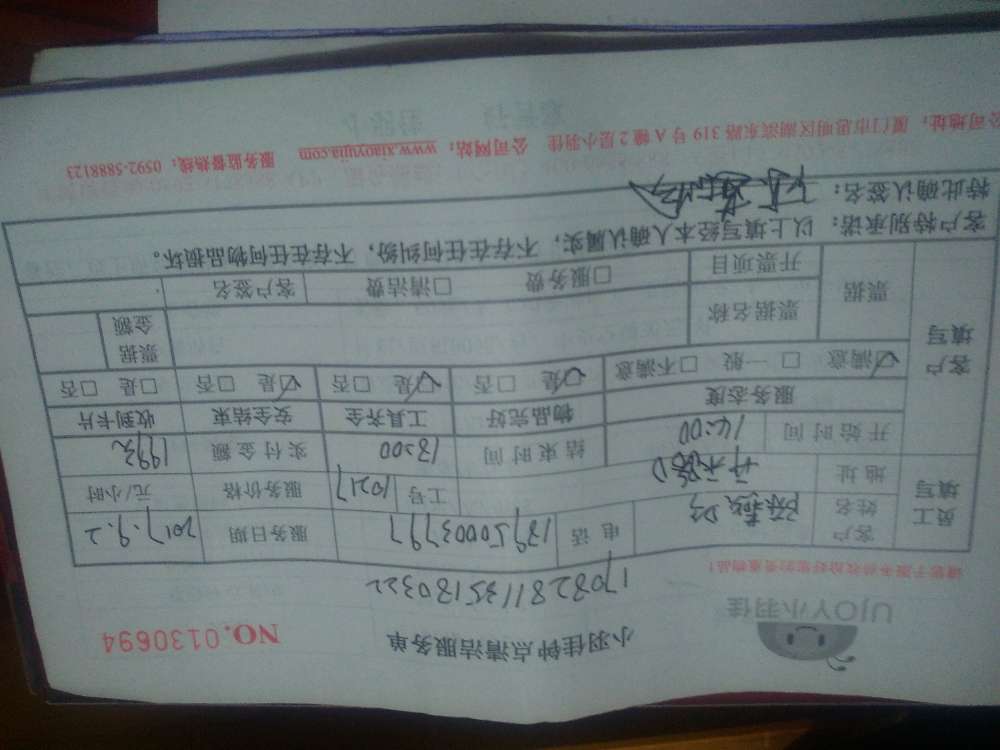 UjOY小羽佳
小羽佳钟点清洁服务单
NO.0130694
请您于服务前收拾好您的贵重物品！
1708281135180322
员工填写
客户姓名
电话 13950003797 服务日期 2017.9.2
地址 工号 10217 服务价格 元/小时
开始时间 14:00 结束时间 18:00 实付金额 199元
客户填写
服务态度 物品完好 工具齐全 安全结束 收到卡片
☑满意 □一般 □不满意 ☑是 □否 ☑是 □否 ☑是 □否 □是 □否
票据 票据名称 票据金额
开票项目 □服务费 □清洁费 客户签名
客户特别承诺：以上填写经本人确认属实，不存在任何纠纷，不存在任何物品损坏。
特此确认签名：
公司地址：厦门市思明区湖滨东路 319 号 A 幢 2 层小羽佳 公司网站：www.xiaoyujia.com 服务监督热线：0592-5888123